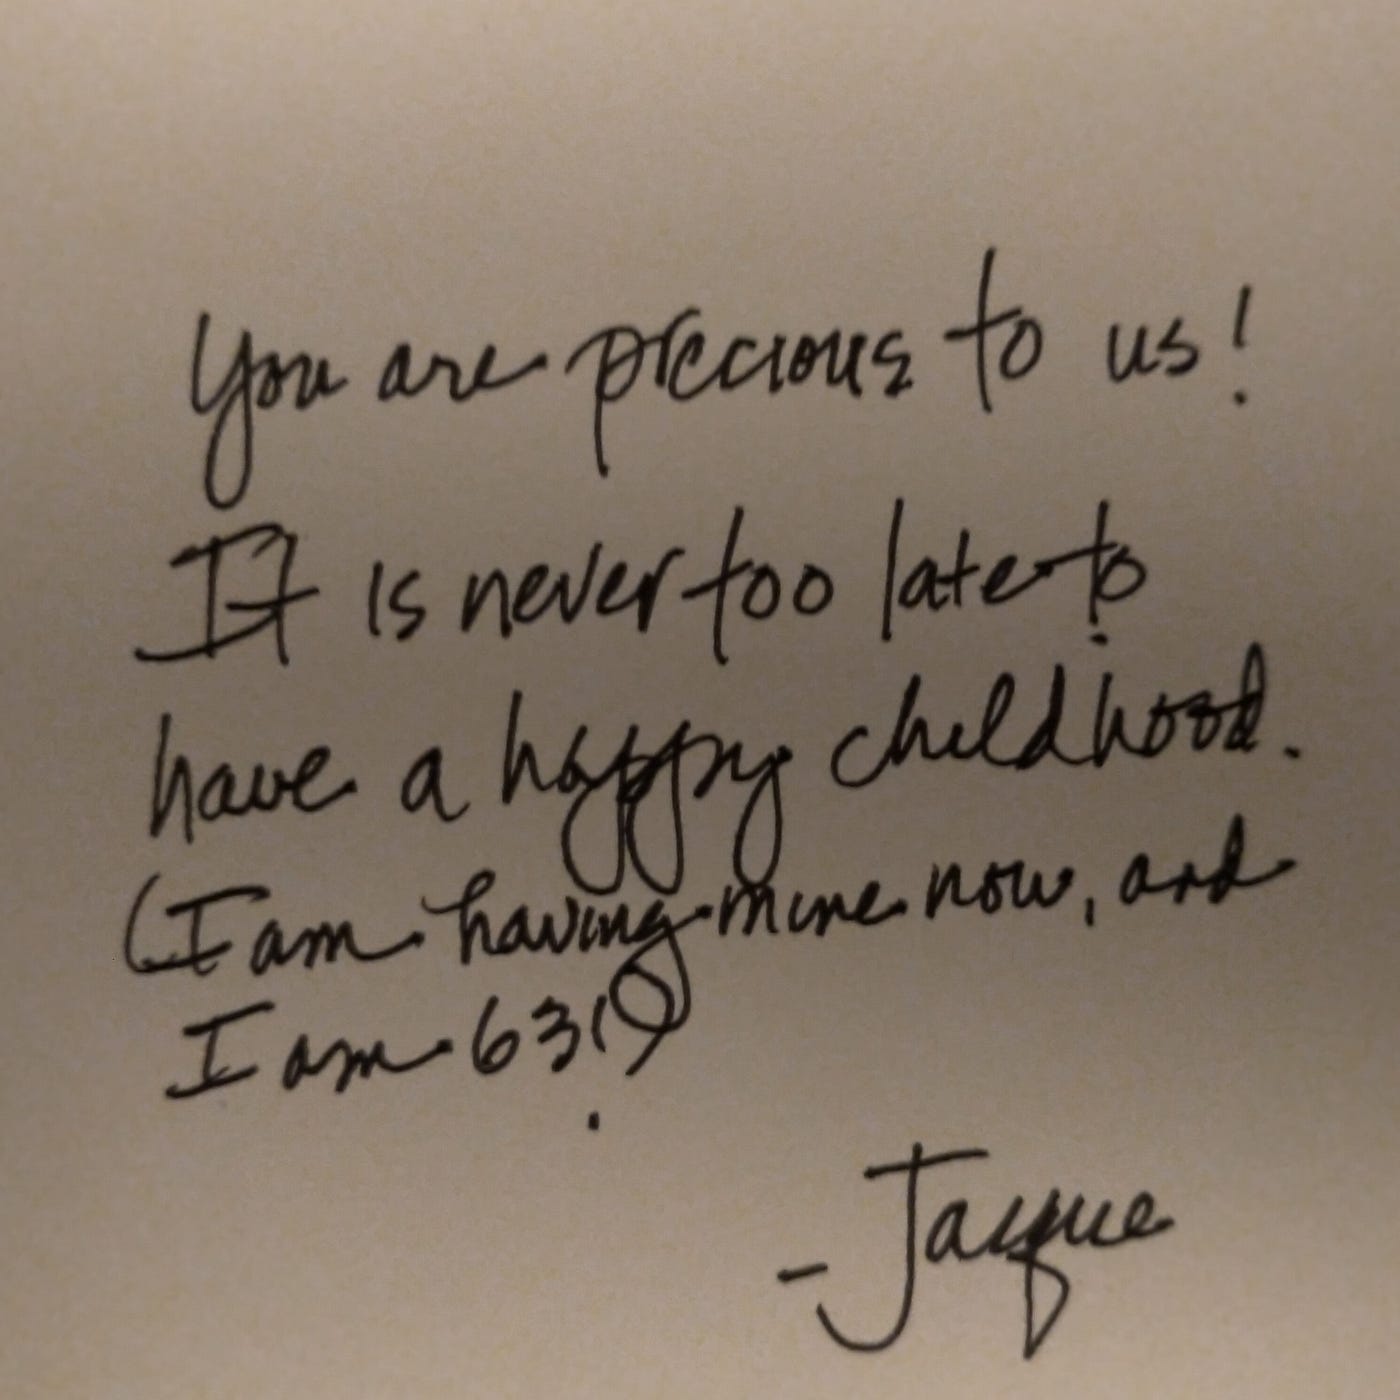 You are precious to us!
It is never too late to
have a happy childhood.
(I am having mine now, and
I am 63!)
-Jacque